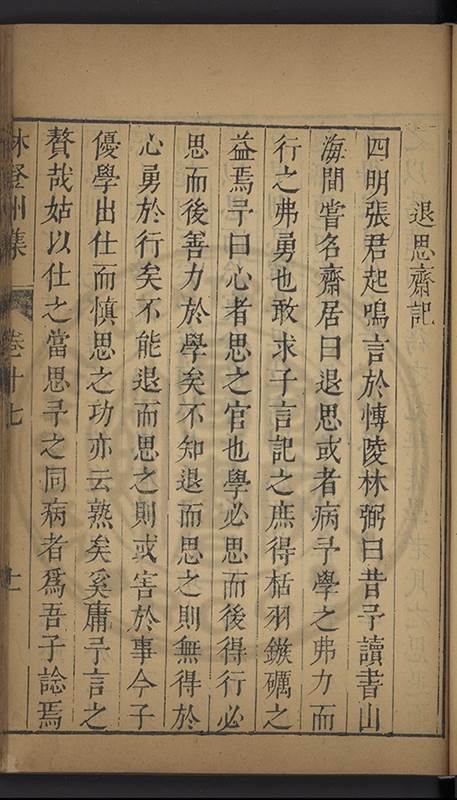 退思齋記
四明張君起鳴言於慱陵林弼曰昔予讀書山
海間嘗名齋居曰退思或者病予學之弗力而
行之弗勇也敢求子言記之庶得栝羽鏃礪之
益焉予曰心者思之官也學必思而後得行必
思而後善力於學矣不知退而思之則無得於
心勇於行矣不能退而思之則或害於事今子
優學出仕而慎思之功亦云熟矣奚庸予言之
贅哉姑以仕之當思予之同病者爲吾子諗焉
林登州集
卷十七